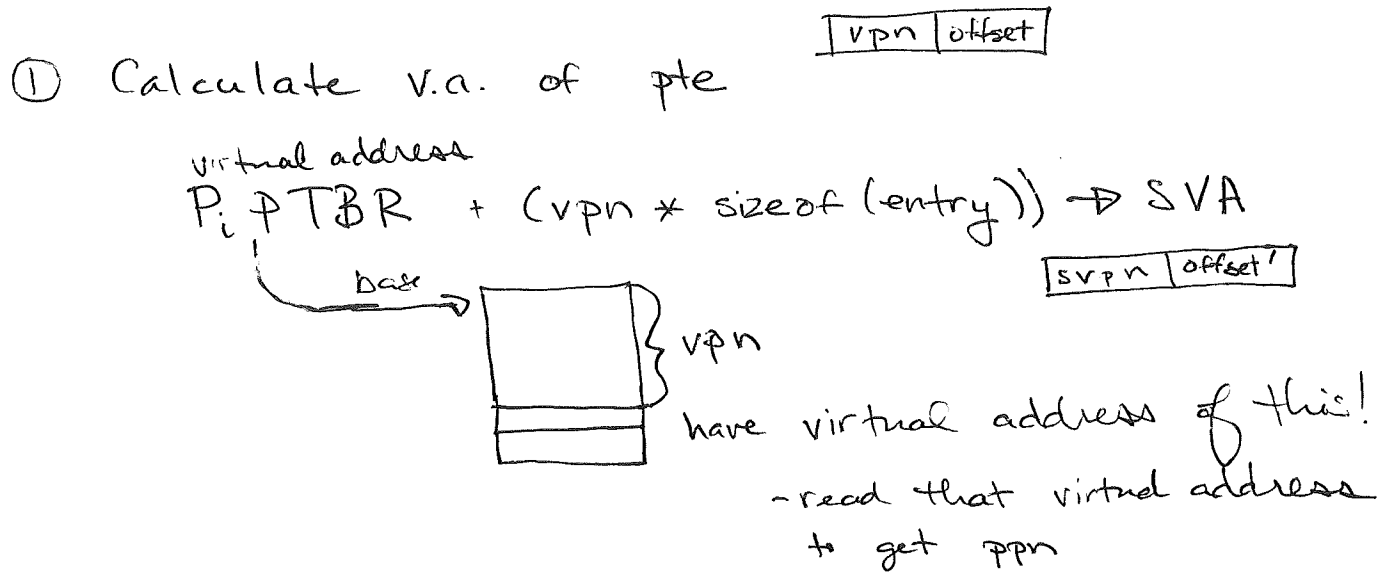 vpn offset
① Calculate v.a. of pte
virtual address
Pᵢ PTBR + (vpn * sizeof (entry)) → SVA
base
svpn offset'
vpn
have virtual address of this!
- read that virtual address
to get ppn